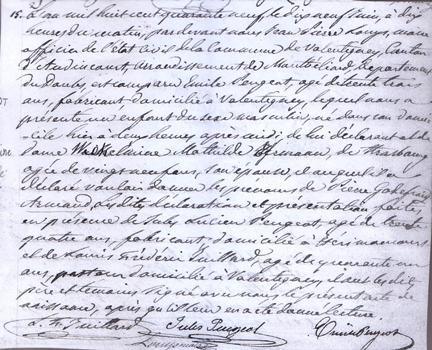 15. L'an mil huit cent quarante neuf le dix neuf Juin, à dix
heures du matin, pardevant nous Jean Pierre maire
officier de l'état civil de la Commune de Valentigney, Canton
d'Audincourt, arrondissement de Montbéliard, département
du Doubs, est comparu Emile Peugeot, agé de trente trois
ans, fabricant, domicilié à Valentigney, lequel nous a
présenté un enfant du sexe masculin, né dans son domi-
-cile hier à deux heures après midi, de lui déclarant et de
Dame Wilhelmine Mathilde de Strasbourg
agée de vingt neuf ans, son épouse, et auquel il a
déclaré vouloir donner les prénoms de Pierre
Armand, lesdites déclaration et présentation faites
en présence de Jules Peugeot, agé de trente
quatre ans, fabricant domicilié à Hérimoncourt
et de Louis Frédéric Tuillard, agé de quarante un
ans, pasteur domicilié à Valentigney, et ont les dits
père et témoins signé avec nous le présent acte de
naissance, après qu'il leur en a été donné lecture.
Tuillard Jules Peugeot Emile Peugeot